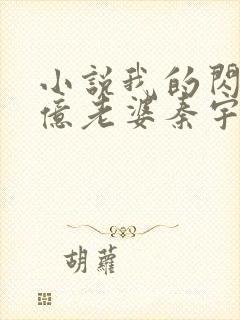 小說我的閃
億老婆秦宇
胡蘿